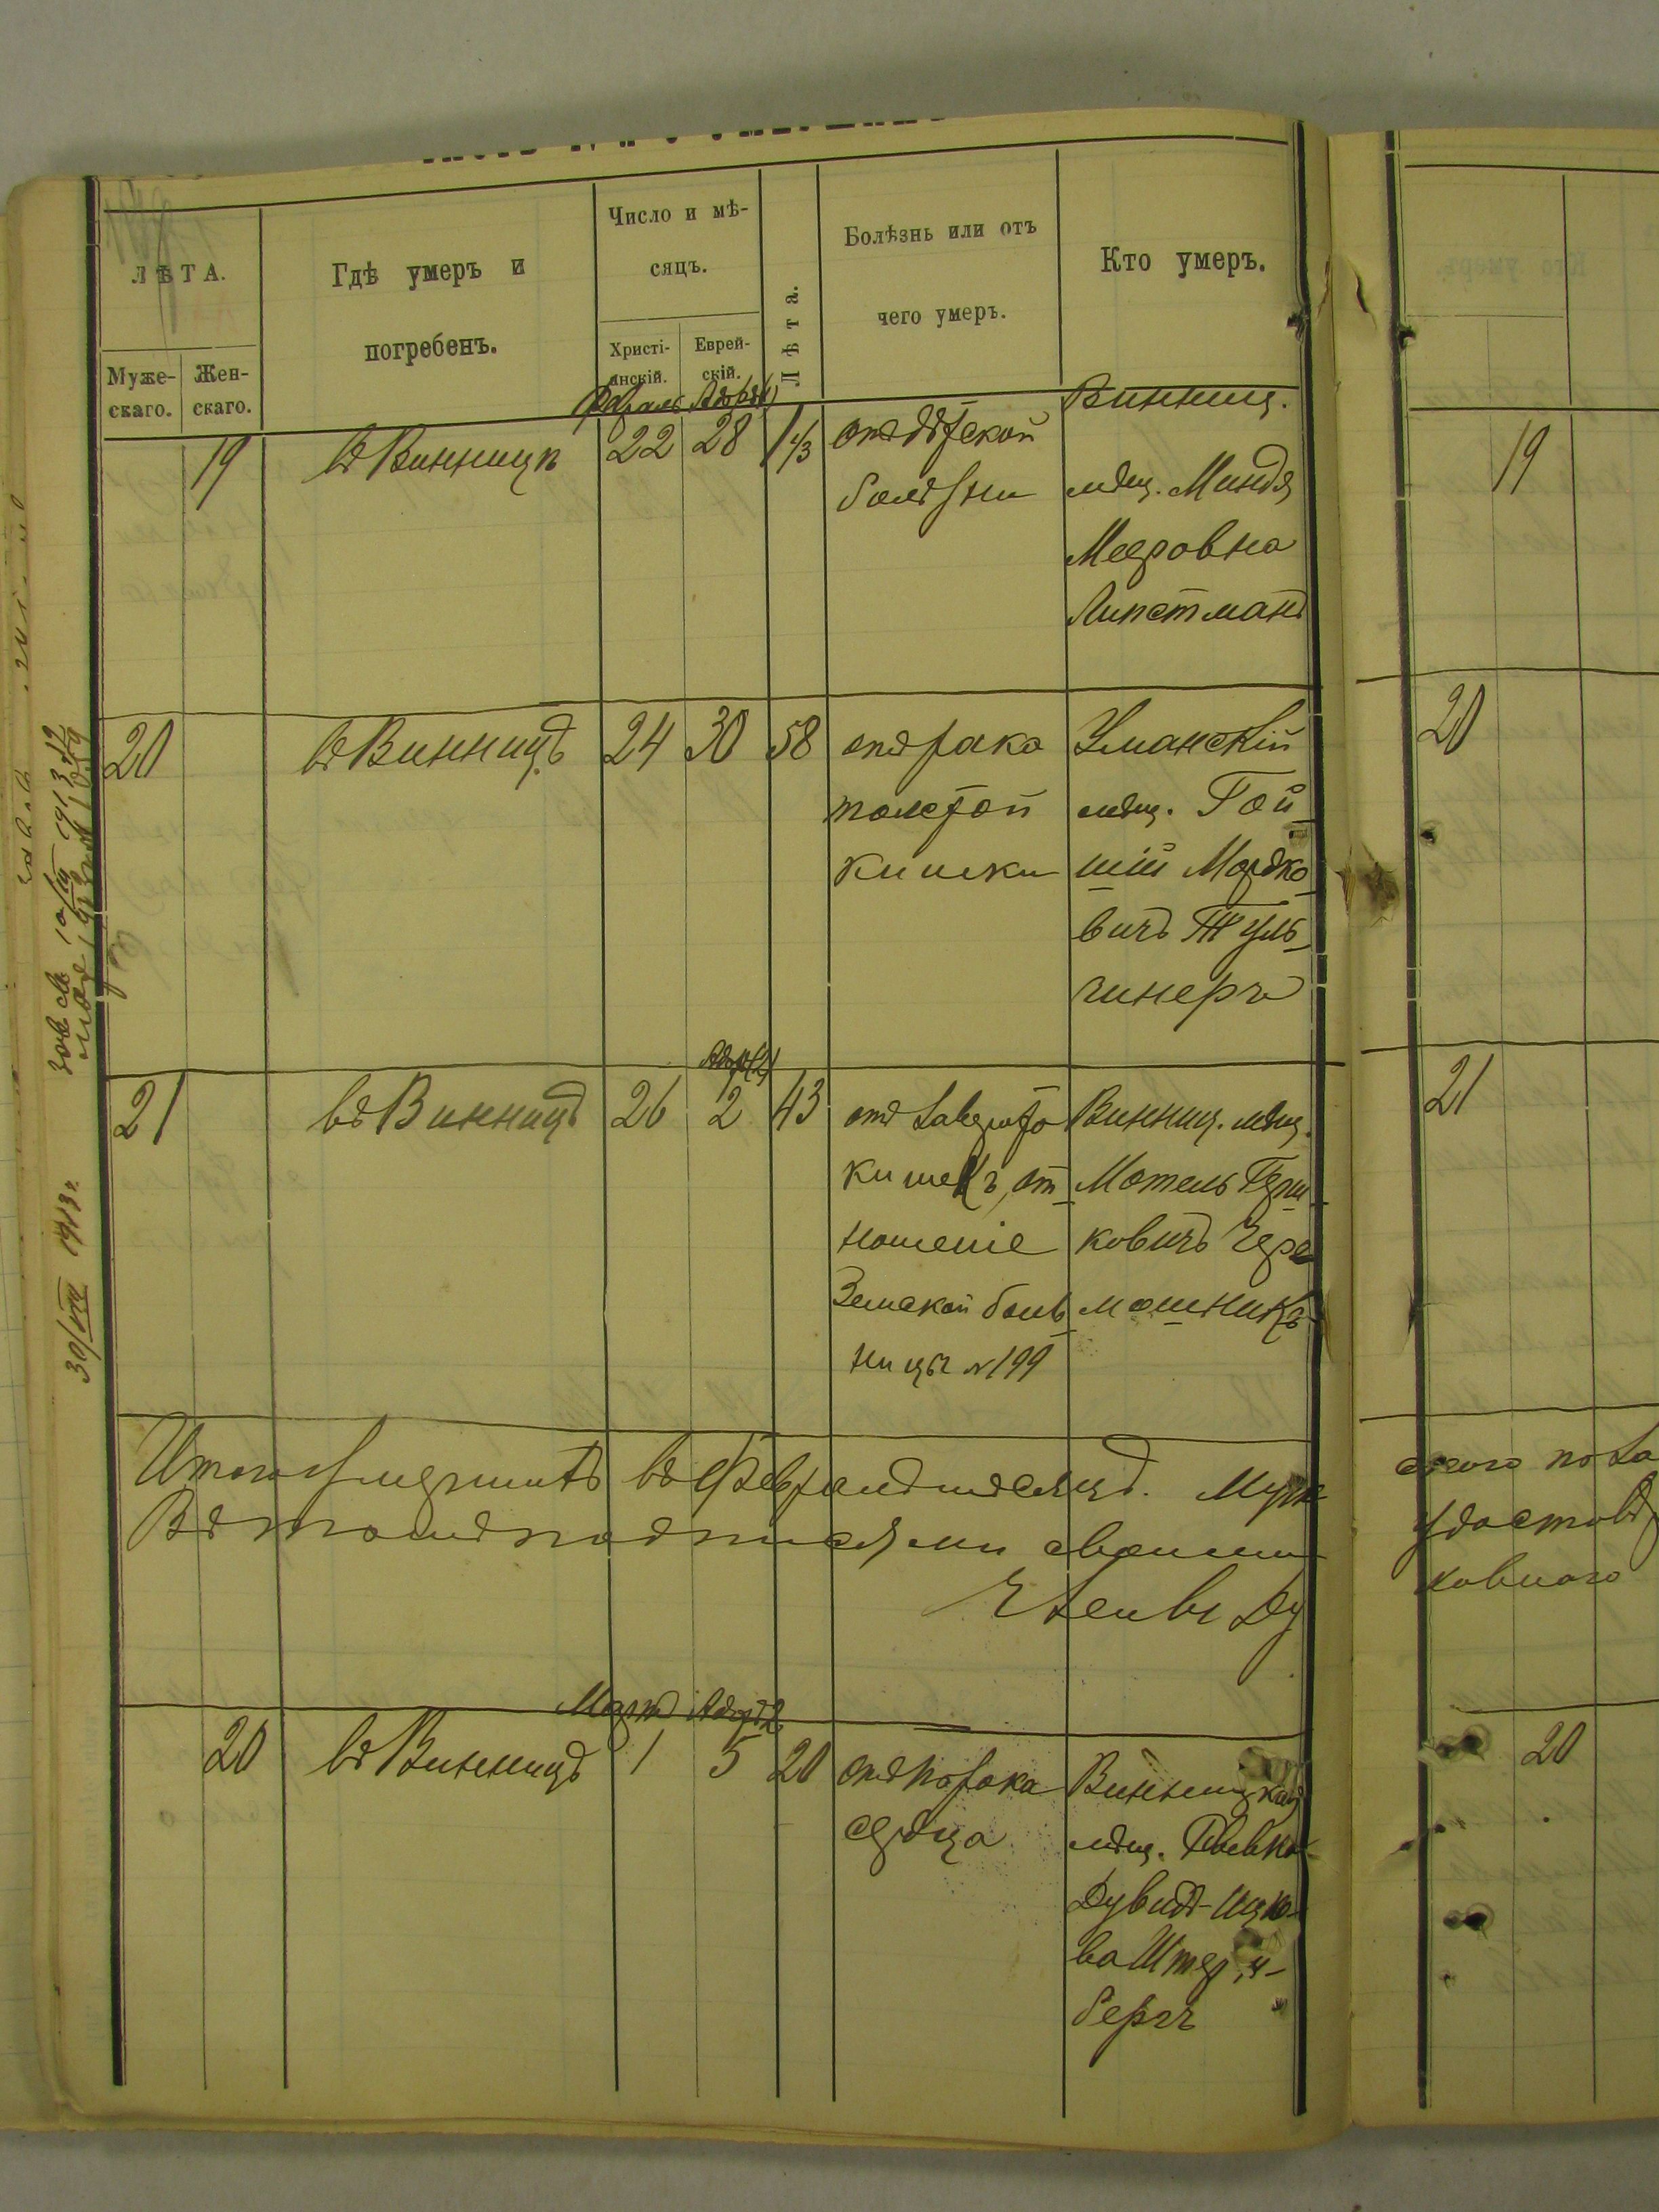 ЛѢТА.
Муже-
скаго.
Жен-
скаго.
Гдѣ умеръ и
погребенъ.
Число и мѣ-
сяцъ.
Христі-
янскій.
Еврей-
скій.
Лѣта.
Болѣзнь или отъ
чего умеръ.
Кто умеръ.
19
въ Винницѣ
22
28
1 1/3
отъ дѣтской
болѣзни
Винниц.
мѣщ. Миндя
Мееровна
Липстманъ
20
въ Винницѣ
24
30
58
отъ рака
толстой
кишки
Уманскій
мѣщ. Гой
шій Мордко
вичъ Туль
чинеръ
21
въ Винницѣ
26
Адаръ (2)
2
43
отъ заворота
кишекъ, от
ношеніе
Земской боль
ницы № 199
Винниц. мѣщ.
Мотель Герш
ковичъ Чере
мошникъ
Итого умершихъ въ Февралѣ мѣсяцѣ. Муж
Въ томъ подписями своими
Члены Ду
Мартъ
Адаръ 2
20
въ Винницѣ
1
5
20
отъ порока
сердца
Винницкая
мѣщ.
Дувидъ-Ицко-
ва Штерн-
бергъ
30/VIII 1913 г.
19
20
21
удостовѣр
ковного
20